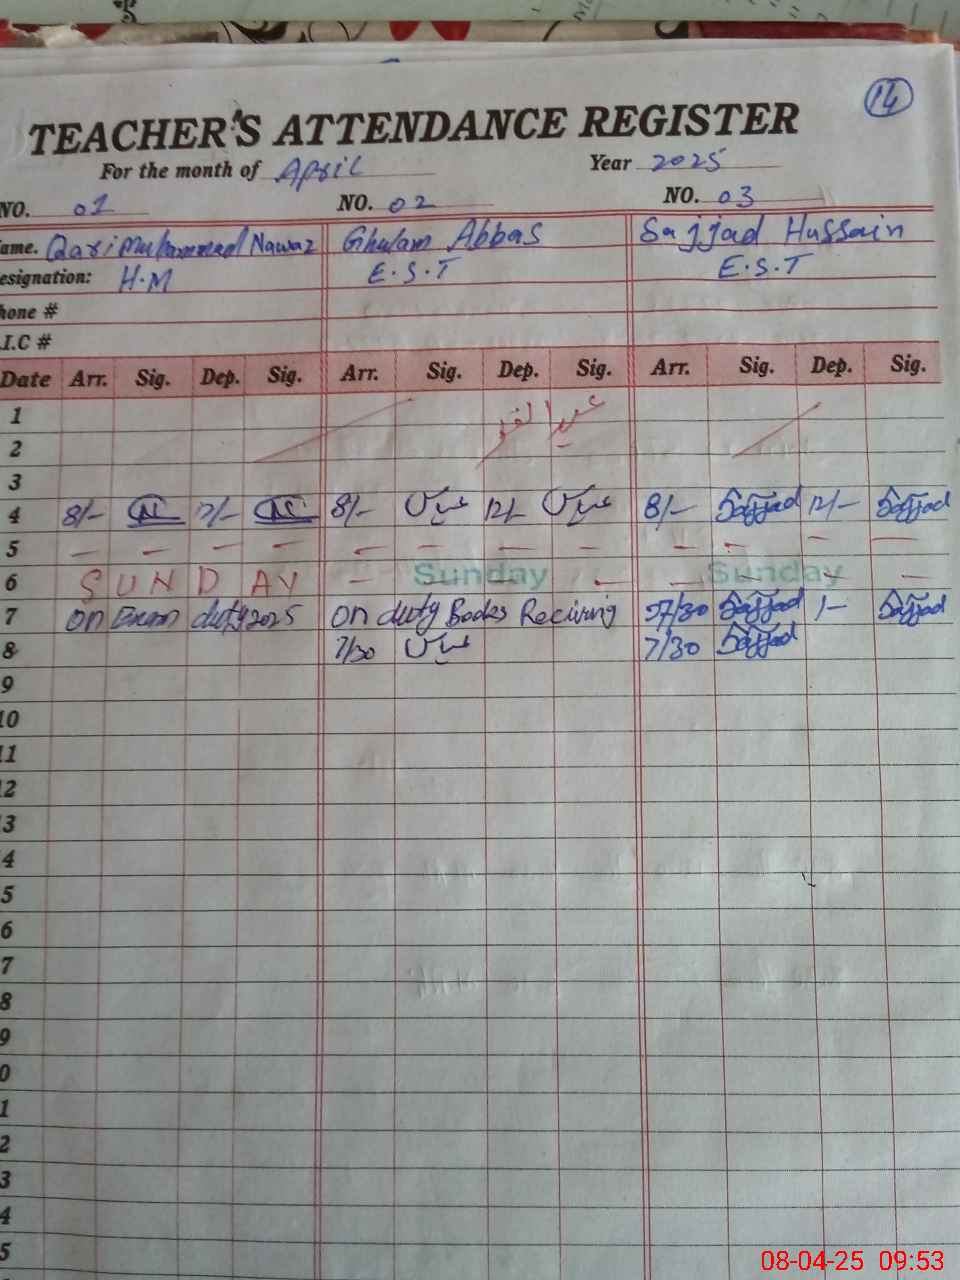 14
TEACHER'S ATTENDANCE REGISTER
For the month of April Year 2025
NO. 01 NO. 02 NO. 03
ame. Qari Muhammad Nawaz Ghulam Abbas Sajjad Hussain
esignation: H.M E.S.T E.S.T
hone #
.I.C #
Date Arr. Sig. Dep. Sig. Arr. Sig. Dep. Sig. Arr. Sig. Dep. Sig.
1 عید الفطر
2
3
4 8/- 12/- 8/- عباس 12/- عباس 8/- Sajjad 12/- Sajjad
5 — — — — — — — — — — — —
6 SUNDAY — Sunday — — Sunday — —
7 On Exam duty 2025 On duty Books Reciving 7/30 Sajjad 1/- Sajjad
8 7/30 عباس 7/30 Sajjad
9
10
11
12
3
4
5
6
7
8
9
0
1
2
3
4
5
08-04-25 09:53